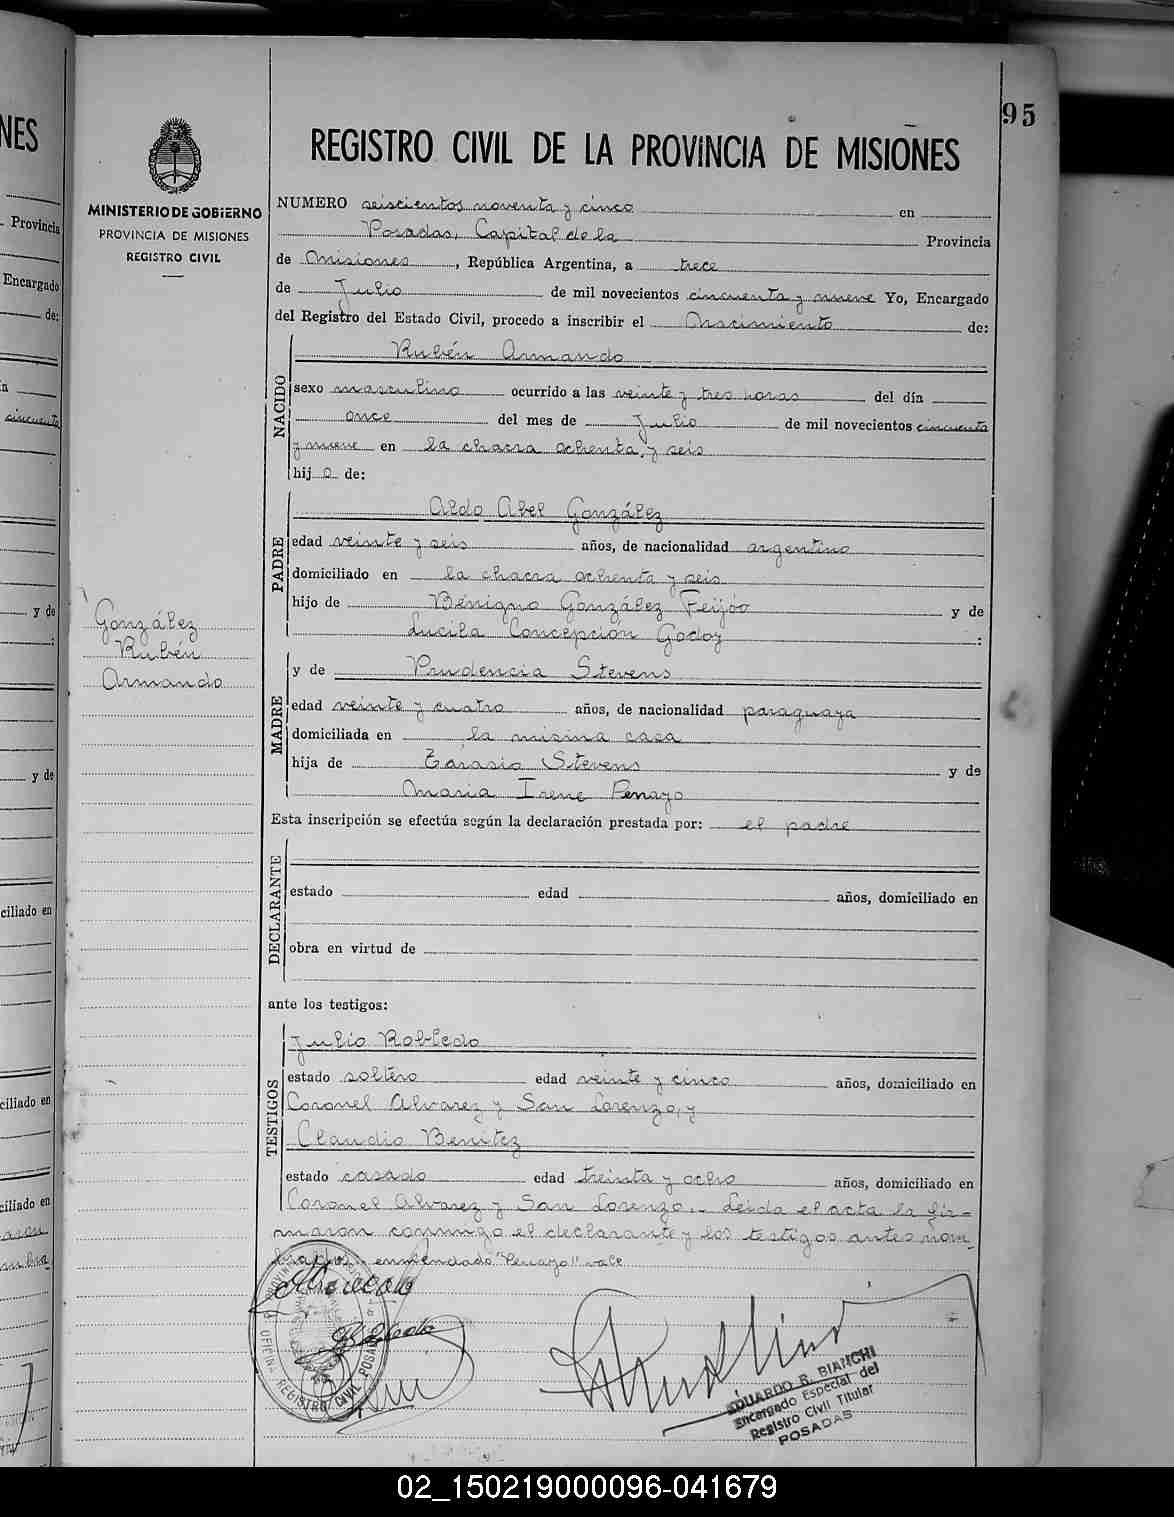 95
REGISTRO CIVIL DE LA PROVINCIA DE MISIONES
MINISTERIO DE GOBIERNO
PROVINCIA DE MISIONES
REGISTRO CIVIL
NUMERO seiscientos noventa y cinco en
Posadas, Capital de la Provincia
de Misiones, República Argentina, a trece
de Julio de mil novecientos cincuenta y nueve Yo, Encargado
del Registro del Estado Civil, procedo a inscribir el Nacimiento de:
NACIDO
Rubén Armando
sexo masculino ocurrido a las veinte y tres horas del día
once del mes de Julio de mil novecientos cincuenta
y nueve en la chacra ochenta y seis
hijo de:
PADRE
Aldo Abel González
edad veinte y seis años, de nacionalidad argentino
domiciliado en la chacra ochenta y seis
hijo de Benigno González Feijóo y de
Lucila Concepción Godoy :
González
Rubén
Armando
MADRE
y de Prudencia Stevens
edad veinte y cuatro años, de nacionalidad paraguaya
domiciliada en la misma casa
hija de Tarasio Stevens y de
Maria Irene Penayo
Esta inscripción se efectúa según la declaración prestada por: el padre
DECLARANTE
estado edad años, domiciliado en
obra en virtud de
ante los testigos:
TESTIGOS
Julio Robledo
estado soltero edad veinte y cinco años, domiciliado en
Coronel Alvarez y San Lorenzo, y
Claudio Benitez
estado casado edad treinta y ocho años, domiciliado en
Coronel Alvarez y San Lorenzo.- Leida el acta la fir-
maron conmigo el declarante y los testigos antes nom-
brados.- enmendado "Penayo" vale
OFICINA REGISTRO CIVIL POSADAS
EDUARDO R. BIANCHI
Encargado Especial del
Registro Civil Titular
POSADAS
02_150219000096-041679